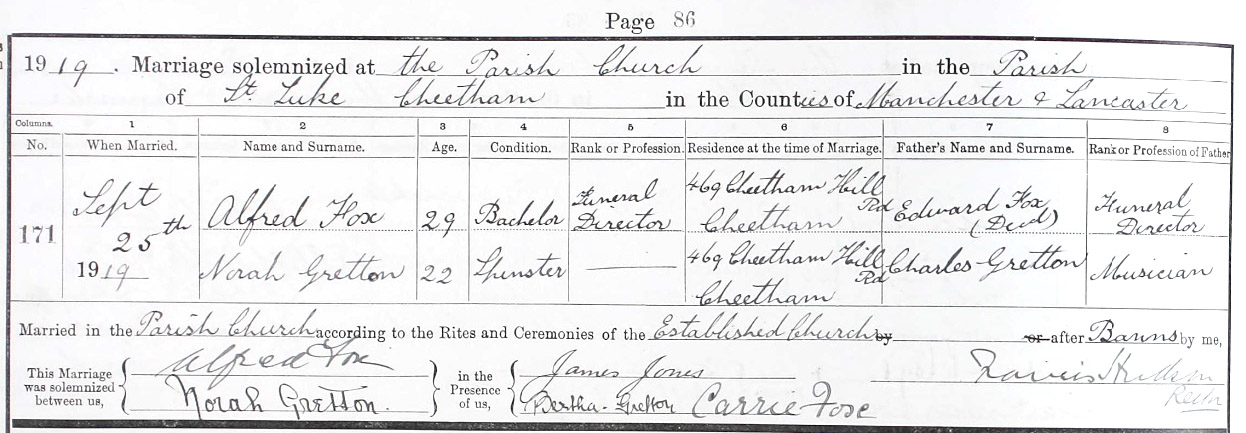 Page 86
1919. Marriage solemnized at the Parish Church in the Parish
of St. Luke Cheetham in the Counties of Manchester & Lancaster
Columns. 1 2 3 4 5 6 7 8
No. When Married. Name and Surname. Age. Condition. Rank or Profession. Residence at the time of Marriage. Father's Name and Surname. Rank or Profession of Father
171 Sept 25th 1919 Alfred Fox 29 Bachelor Funeral Director 469 Cheetham Hill Rd Cheetham Edward Fox (Decd) Funeral Director
Norah Gretton 22 Spinster 469 Cheetham Hill Rd Cheetham Charles Gretton Musician
Married in the Parish Church according to the Rites and Ceremonies of the Established Church by or after Banns by me,
This Marriage was solemnized between us, Alfred Fox in the Presence of us, James Jones Hudson
Norah Gretton. Bertha Gretton Carrie Foxe Rector